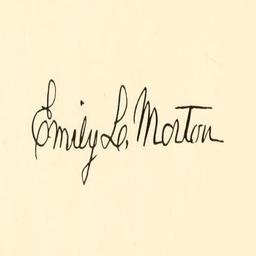 Emily L. Morton